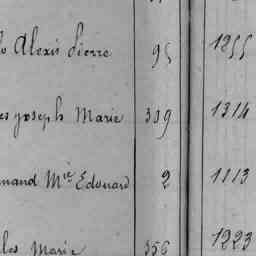 Alexis Pierre 95 1255
Joseph Marie 309 1314
mand Mie Edouard 2 1113
les Marie 356 1223